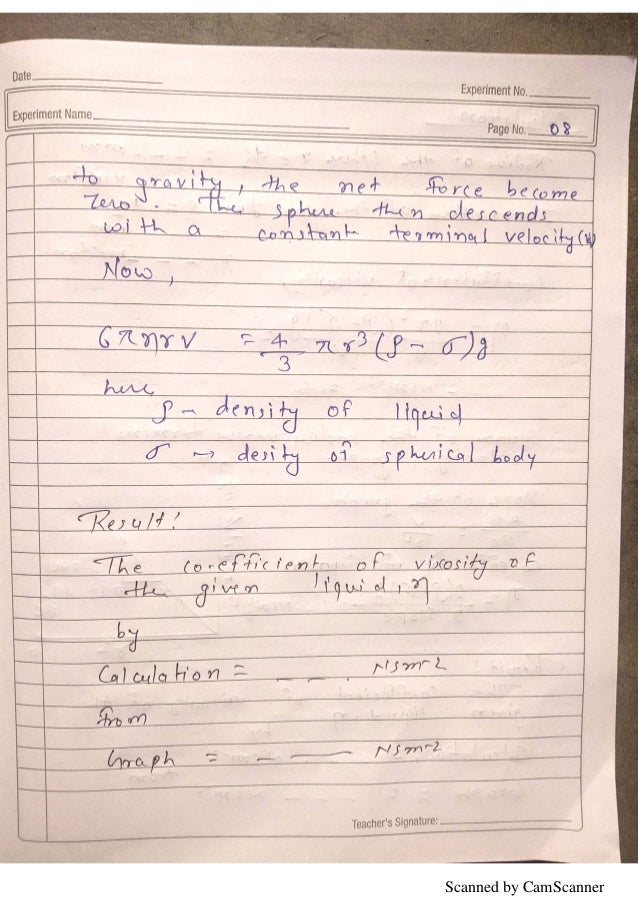 Date
Experiment No.
Experiment Name
Page No. 08
to gravity, the net force become
zero. The sphere then descends
with a constant terminal velocity (v)
Now,
6πηrv = 4/3 πr³(ρ - σ)g
here
ρ - density of liquid
σ → desity of spherical body
Result:
The co-efficient of viscosity of
the given liquid, η
by
Calculation = _ _ . Nsm-2
from
Graph = _ __ Nsm-2
Teacher's Signature:
Scanned by CamScanner